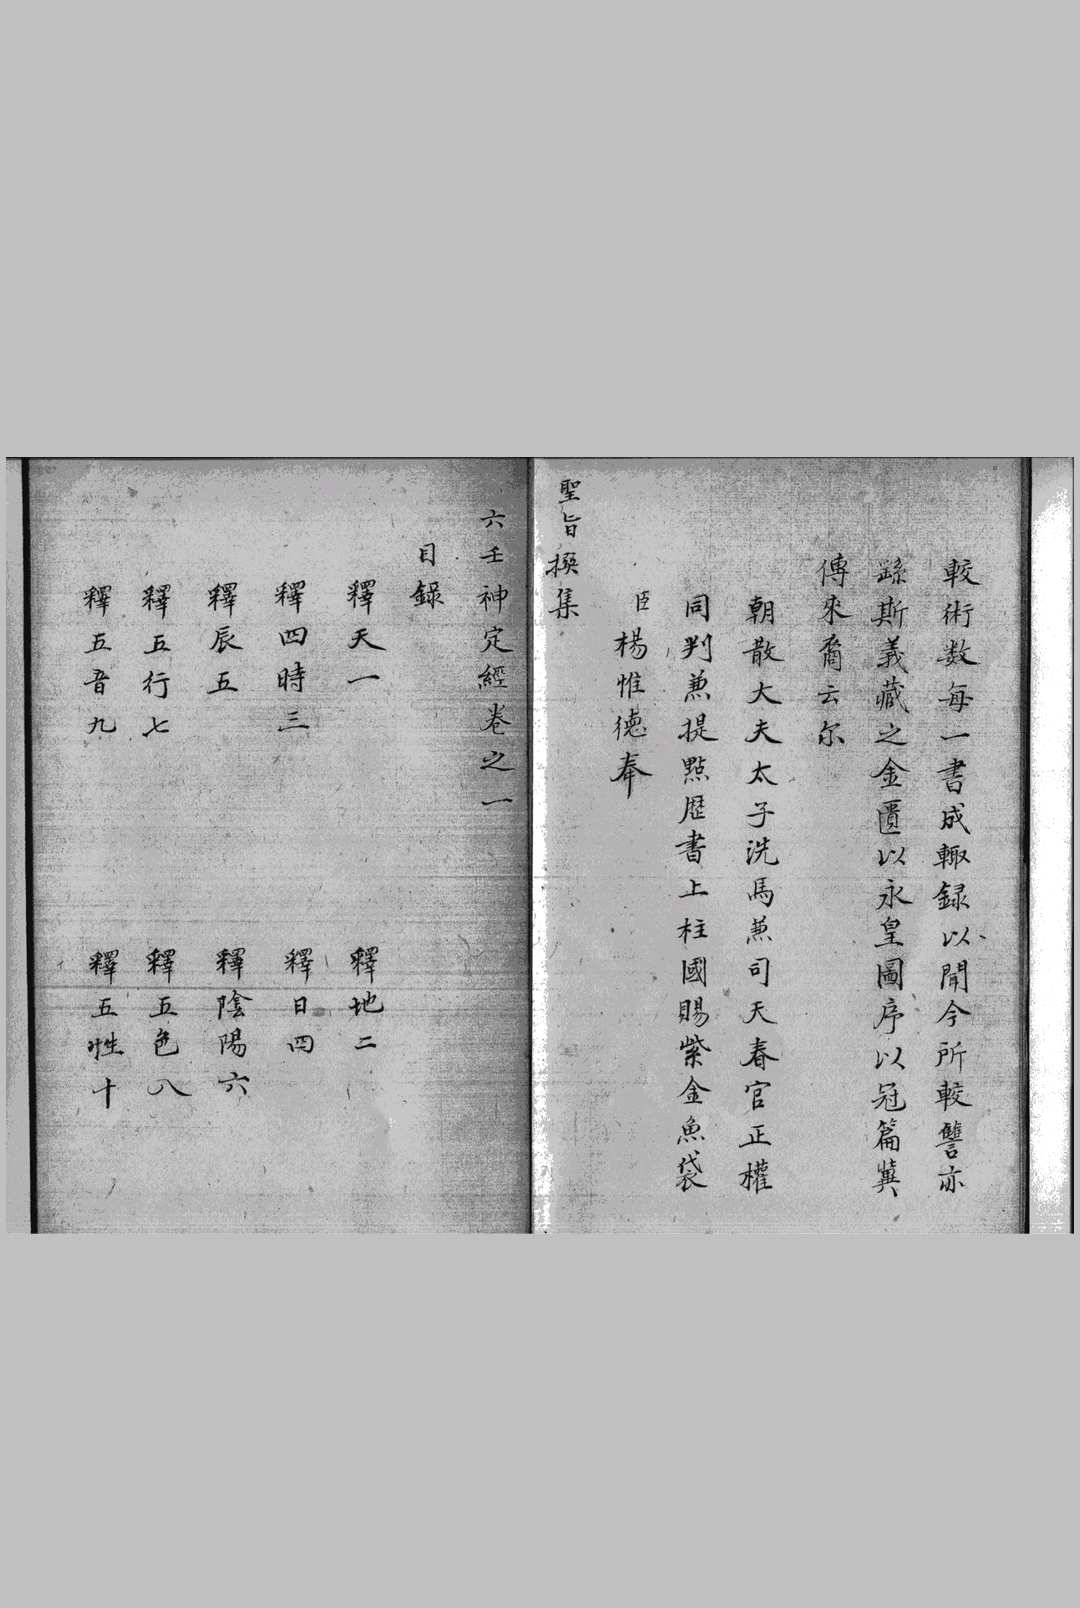 較術数每一書成輙録以聞今所較讐亦
繇斯義藏之金匱以永皇圖序以冠篇冀
傳來裔云尔
朝散大夫太子洗馬兼司天春官正權
同判兼提點歷書上柱國賜紫金魚袋
臣楊惟德奉
聖旨撰集
六壬神定經卷之一
目錄
釋天一 釋地二
釋四時三 釋日四
釋辰五 釋陰陽六
釋五行七 釋五色八
釋五音九 釋五性十